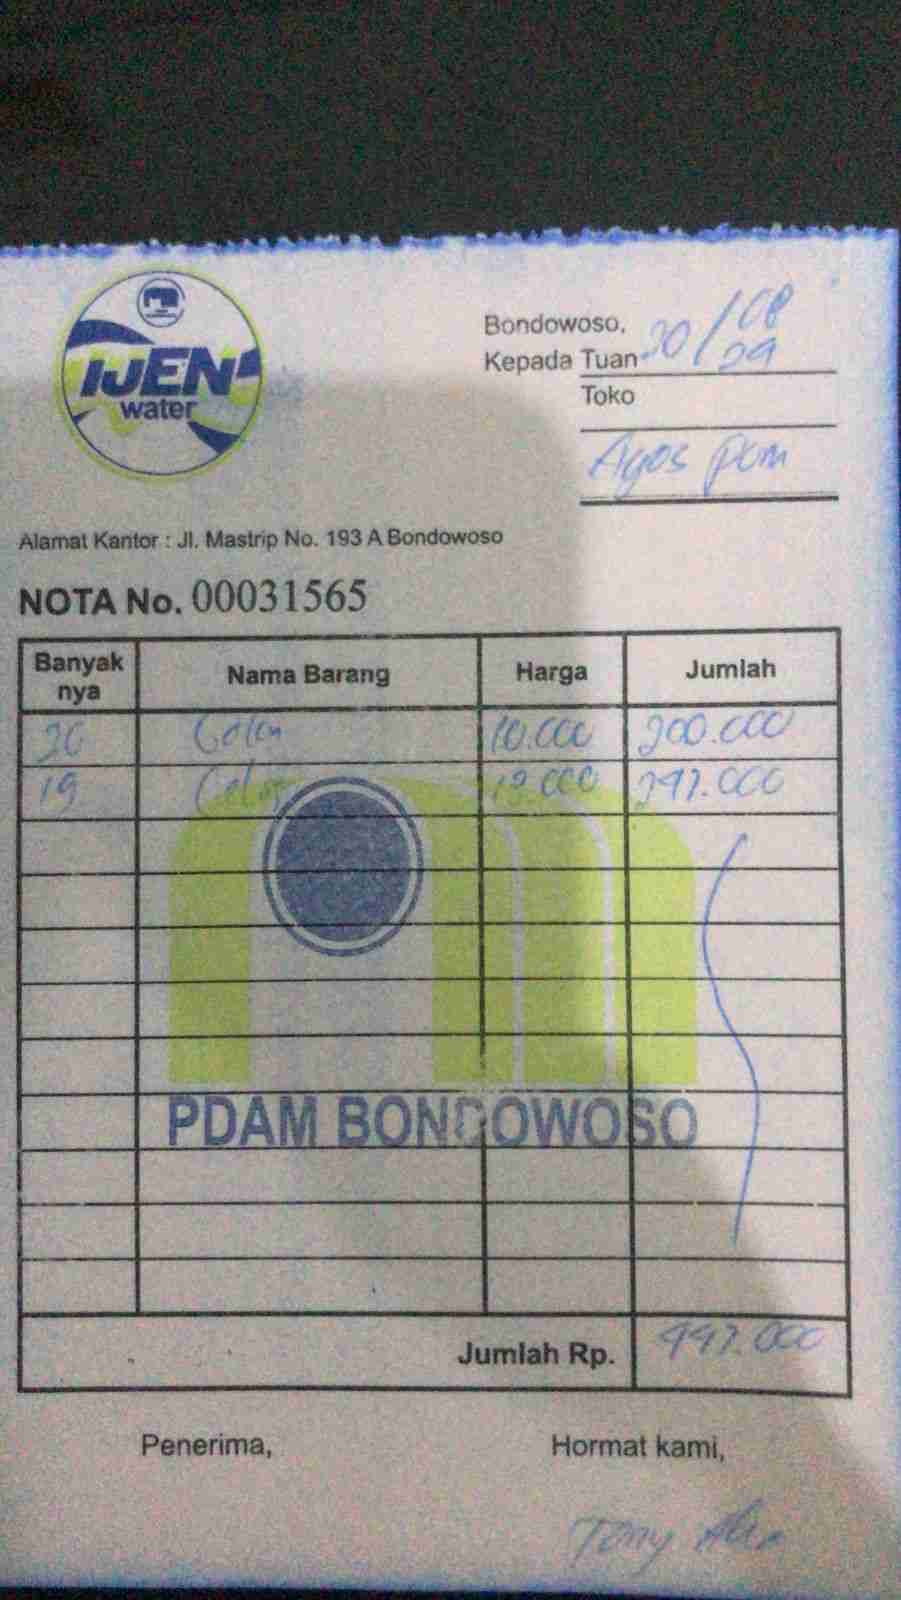 IJEN
water
Bondowoso, 30/08
Kepada Tuan 24
Toko
Agos pom
Alamat Kantor : Jl. Mastrip No. 193 A Bondowoso
NOTA No. 00031565
Banyak nya Nama Barang Harga Jumlah
20 10.000 200.000
19 13.000 247.000
PDAM BONDOWOSO
Jumlah Rp. 447.000
Penerima, Hormat kami,
Tony